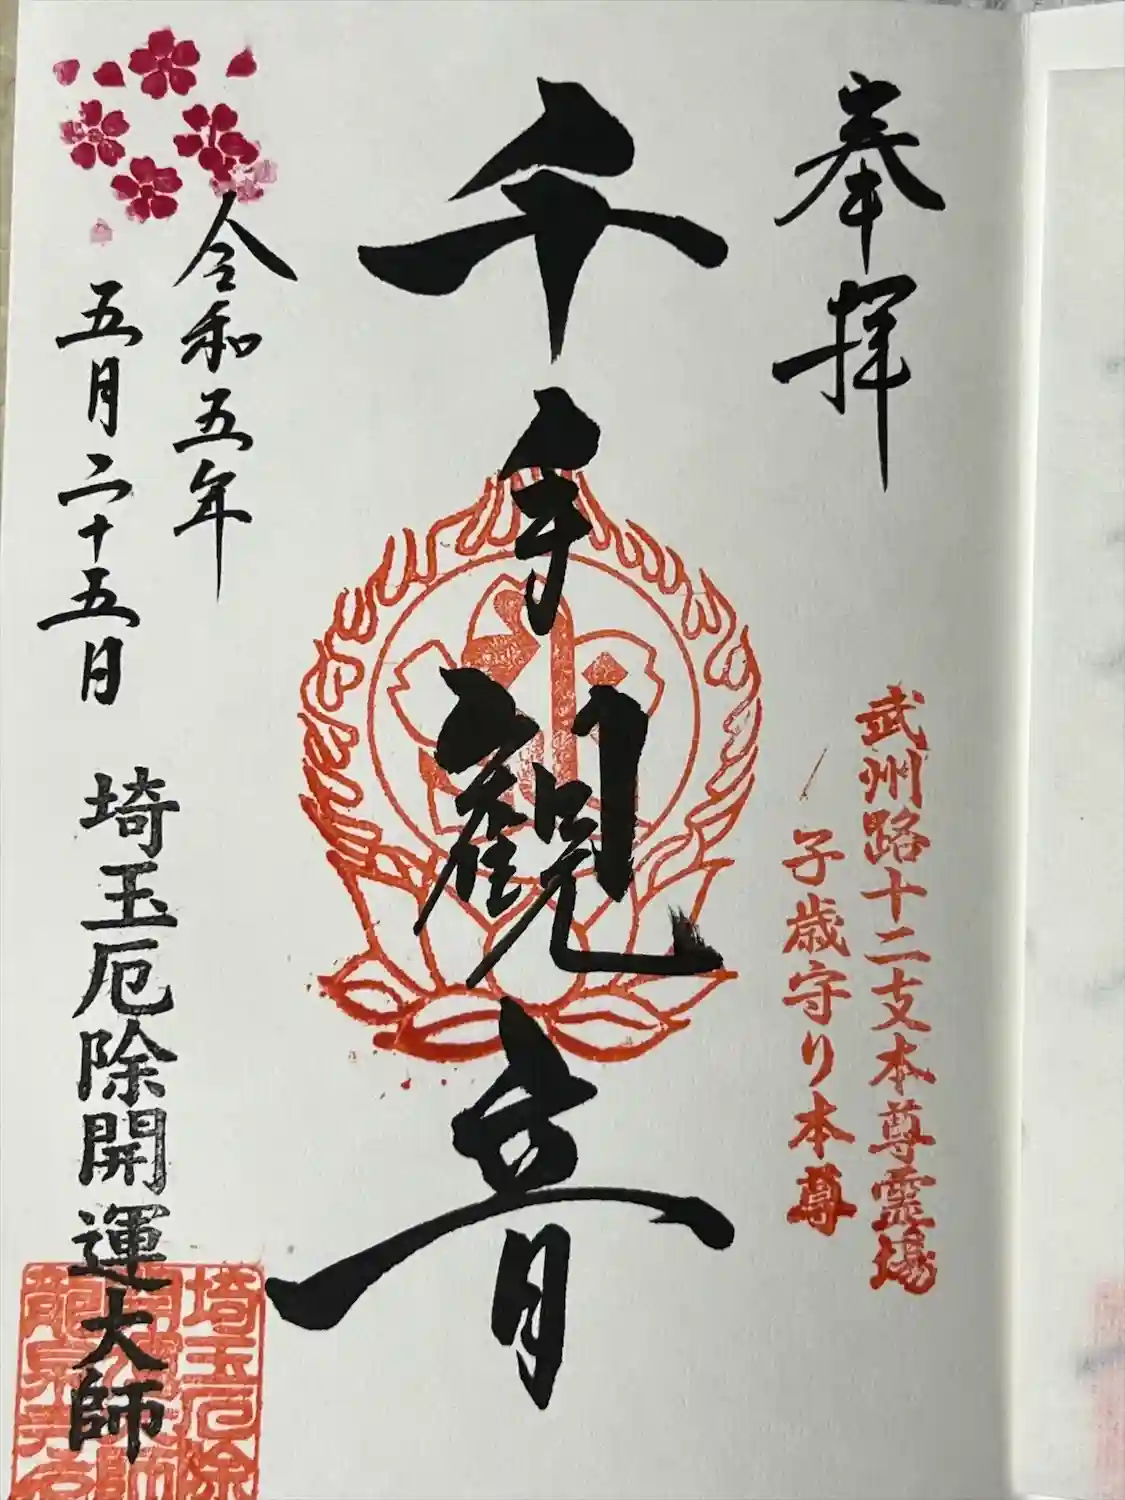 奉拝
武州路十二支本尊霊場
子歳守り本尊
千手観音
令和五年
五月二十五日
埼玉厄除開運大師
埼玉厄除